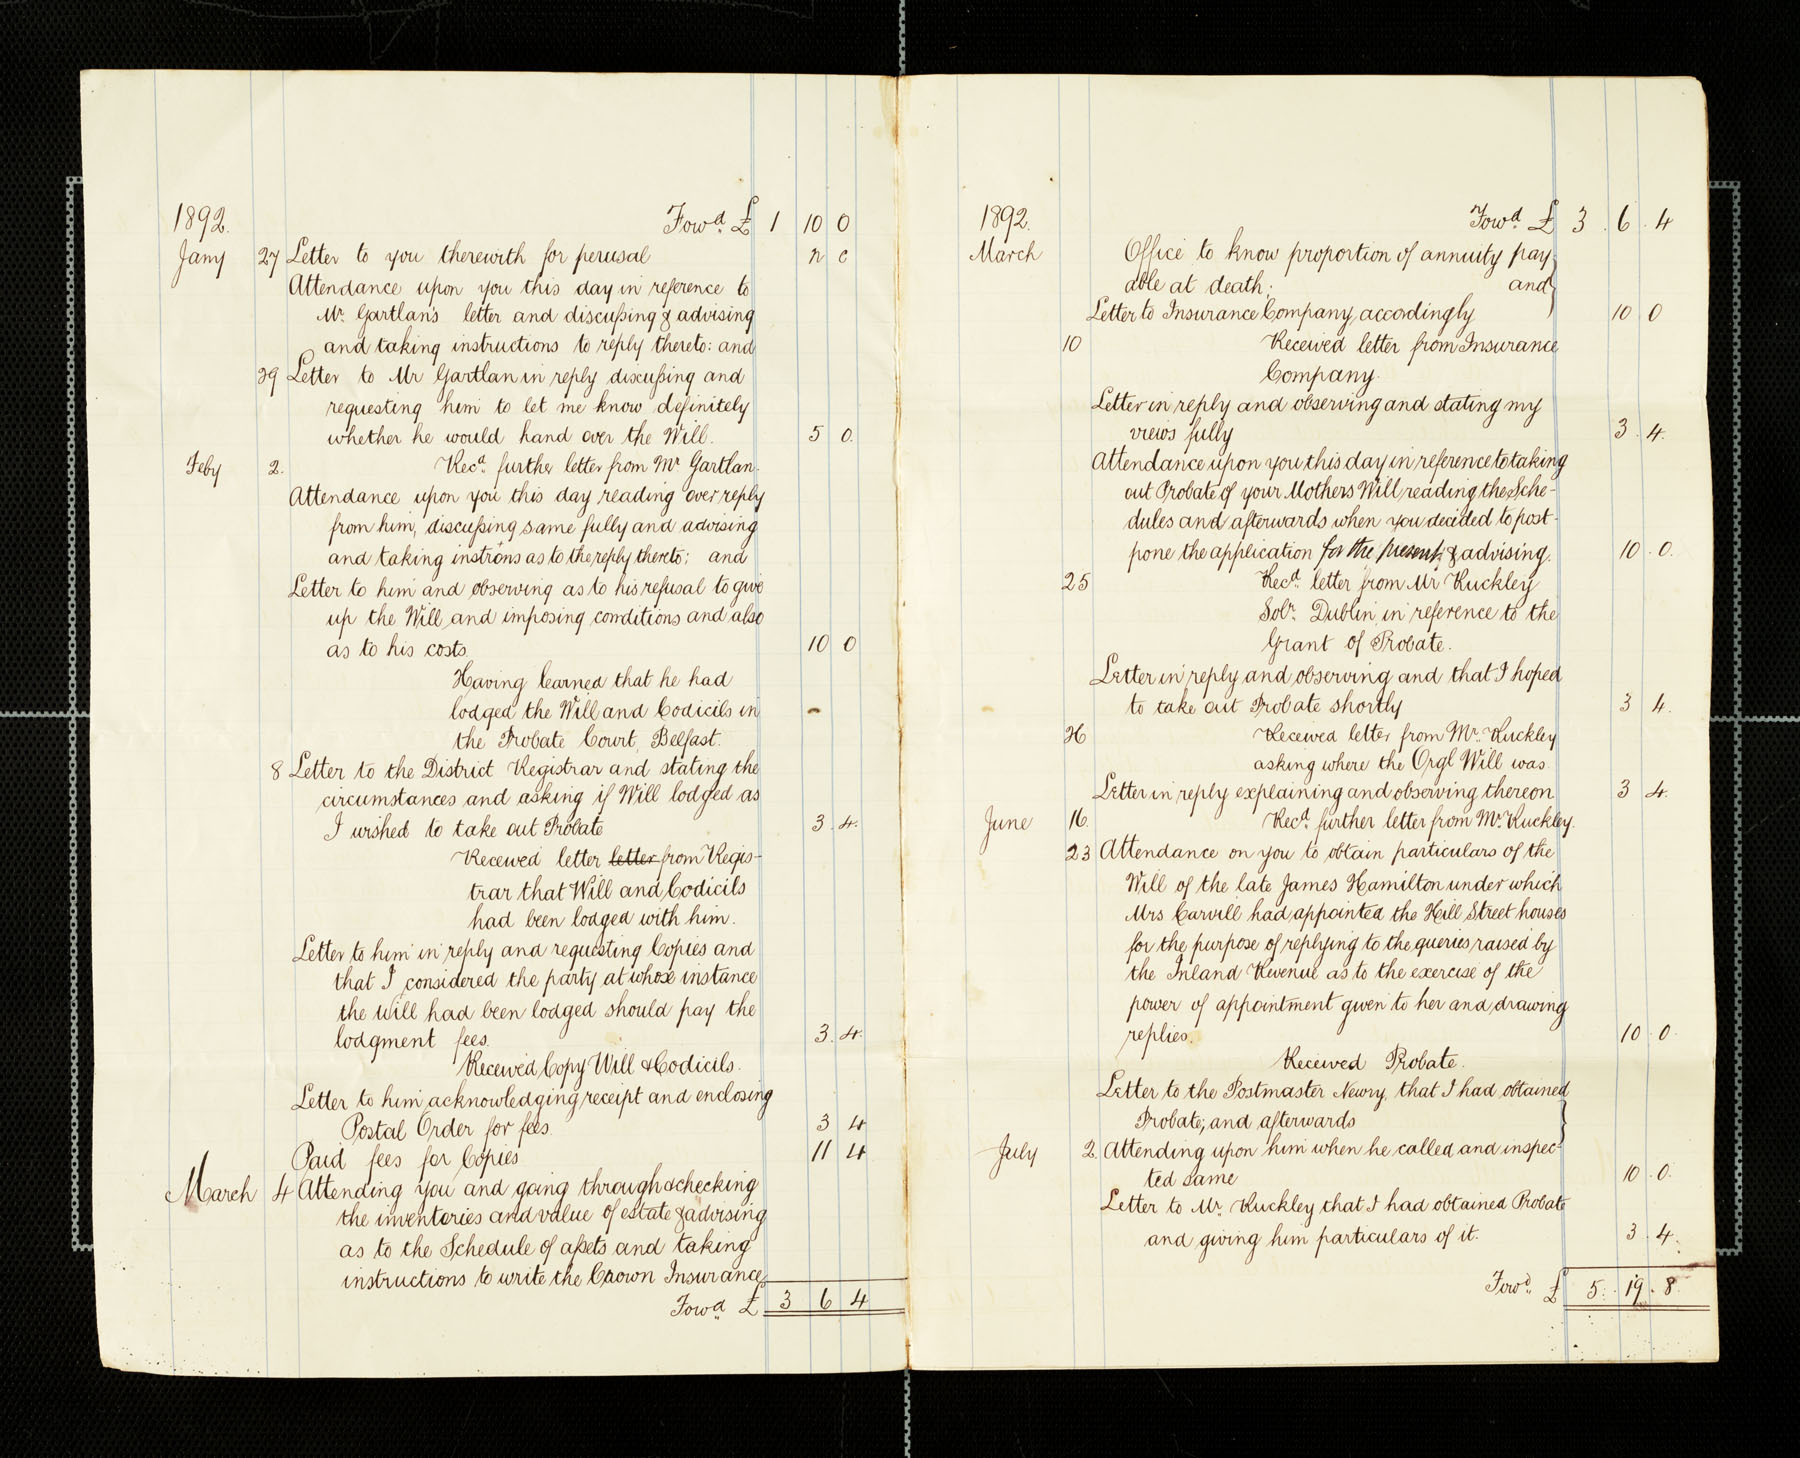 1892. Fowd. £ 1 10 0
Jany 27 Letter to you therewith for perusal n c
Attendance upon you this day in reference to
Mr. Gartlan's letter and discußing & advising
and taking instructions to reply thereto: and
29 Letter to Mr Gartlan in reply discußing and
requesting him to let me know definitely
whether he would hand over the Will. 5 0.
Feby 2. Recd. further letter from Mr. Gartlan.
Attendance upon you this day reading over reply
from him, discußing same fully and advising
and taking instrons as to the reply thereto; and
Letter to him and observing as to his refusal to give
up the Will and imposing conditions and also
as to his costs 10 0
Having learned that he had
lodged the Will and Codicils in
the Probate Court, Belfast.
8 Letter to the District Registrar and stating the
circumstances and asking if Will lodged as
I wished to take out Probate 3. 4.
Received letter letter from Regis-
trar that Will and Codicils
had been lodged with him.
Letter to him in reply and requesting Copies and
that I considered the party at whose instance
the Will had been lodged should pay the
lodgment fees. 3. 4.
Received Copy Will & Codicils.
Letter to him acknowledging receipt and enclosing
Postal Order for fees. 3 4
Paid fees for Copies 11 4
March 4 Attending you and going through & checking
the inventories and value of estate & advising
as to the Schedule of aßets and taking
instructions to write the Crown Insurance
Fowd. £ 3 6 4
1892. Fowd. £ 3. 6. 4
March Office to know proportion of annuity pay-
able at death; and
Letter to Insurance Company accordingly 10 0
10 Received letter from Insurance
Company.
Letter in reply and observing and stating my
views fully 3. 4.
Attendance upon you this day in reference to taking
out Probate of your Mothers Will reading the Sche-
dules and afterwards when you decided to post-
pone the application for the present, & advising. 10. 0.
25 Recd. letter from Mr Kuckley
Solr. Dublin, in reference to the
Grant of Probate.
Letter in reply and observing and that I hoped
to take out Probate shortly 3 4.
26 Received letter from Mr. Kuckley
asking where the Orgl Will was.
Letter in reply explaining and observing thereon 3 4.
June 16. Recd. further letter from Mr. Kuckley.
23 Attendance on you to obtain particulars of the
Will of the late James Hamilton under which
Mrs Carvill had appointed the Hill Street houses
for the purpose of replying to the queries raised by
the Inland Revenue as to the exercise of the
power of appointment given to her and drawing
replies. 10. 0.
Received Probate.
Letter to the Postmaster Newry, that I had obtained
Probate; and afterwards
July 2. Attending upon him when he called and inspec-
ted same 10. 0.
Letter to Mr. Kuckley that I had obtained Probate
and giving him particulars of it. 3. 4.
Fowd. £ 5. 19. 8.